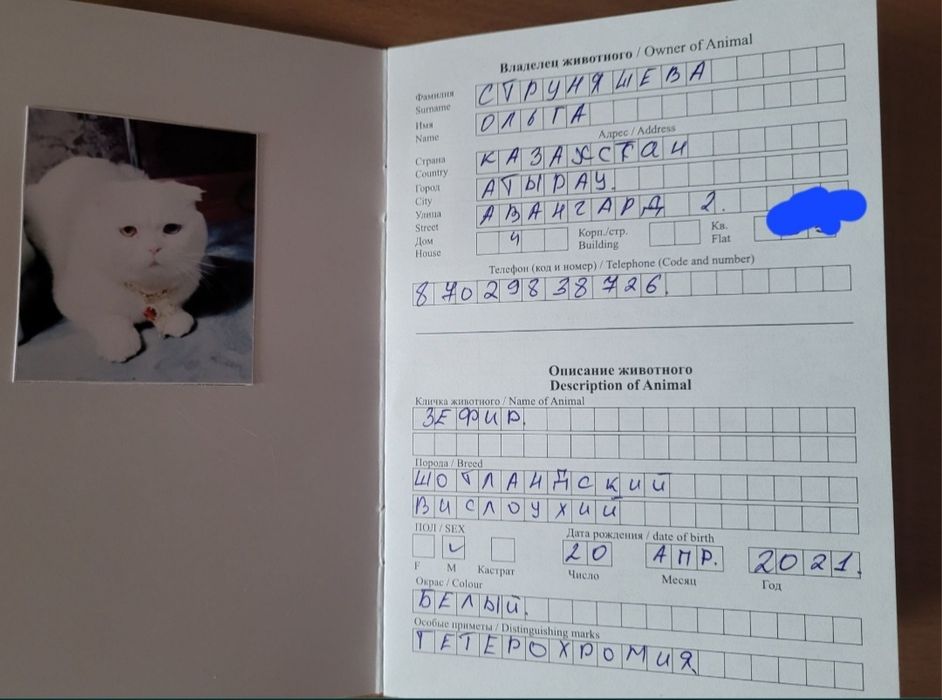 Владелец животного / Owner of Animal
Фамилия СТРУНЯШЕВА
Surname
Имя ОЛЬГА
Name
Адрес / Address
Страна КАЗАХСТАН
Country
Город АТЫРАУ.
City
Улица АВАНГАРД 2.
Street
Дом 4 Корп./стр. Кв.
House Building Flat
Телефон (код и номер) / Telephone (Code and number)
87029838726.
Описание животного
Description of Animal
Кличка животного / Name of Animal
ЗЕФИР.
Порода / Breed
ШОТЛАНДСКИЙ
ВИСЛОУХИЙ
ПОЛ / SEX Дата рождения / date of birth
20 АПР. 2021.
F M Кастрат Число Месяц Год
Окрас / Colour
БЕЛЫЙ.
Особые приметы / Distinguishing marks
ГЕТЕРОХРОМИЯ